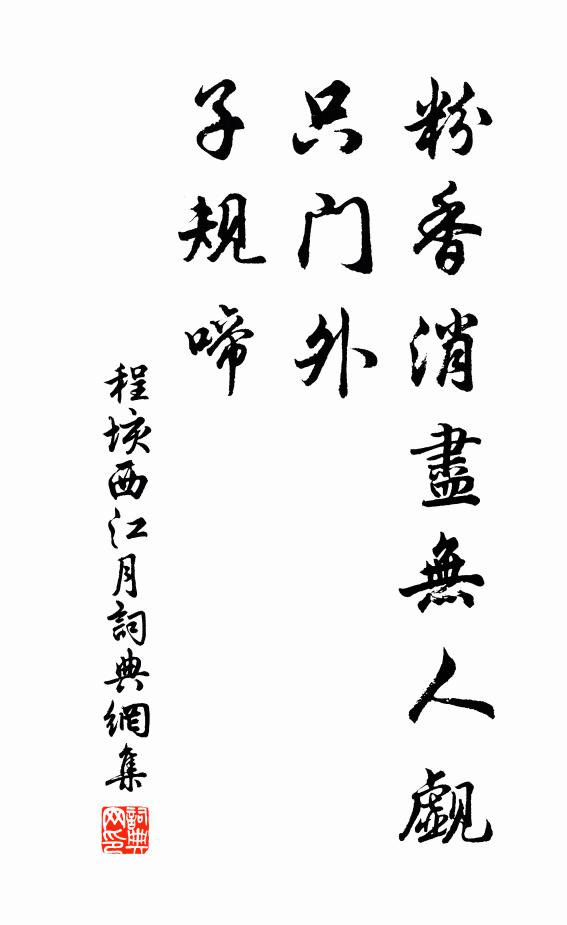 粉香消盡無人覰
只门外
子規啼
程垓西江月詞典網集
詞典
网印